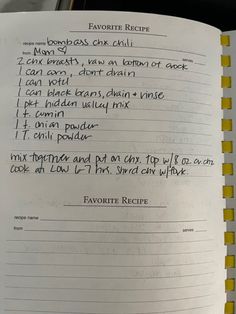 FAVORITE RECIPE
recipe name bombass chx chili
from Mom ♡ serves
2 chx breasts, raw on bottom of crock
1 can corn, dont drain
1 can rotel
1 can black beans, drain + rinse
1 pkt hidden valley mix
1 t. cumin
1 t. onion powder
1 T. chili powder
mix together and put on chx. top w/ 8 oz cr chz
cook on LOW 6-7 hrs. shred chx w/ fork.
FAVORITE RECIPE
recipe name
from serves